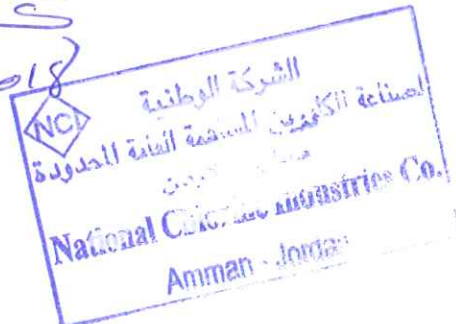 S
018
NCI
الشركة الوطنية
لصناعة الكلورين المساهمة العامة المحدودة
National Industries Co.
Amman - Jordan